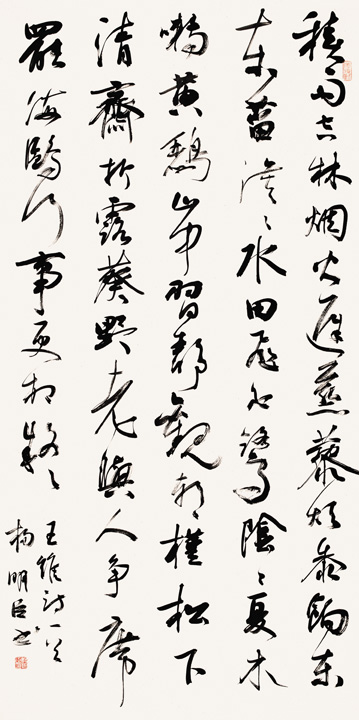 積雨空林烟火遲蒸藜炊黍餉東
東菑漠〻水田飛白鷺陰〻夏木
囀黃鸝山中習靜觀朝槿松下
清齋折露葵野老與人争席
罷海鷗何事更相疑
王維詩一首
楊明臣書